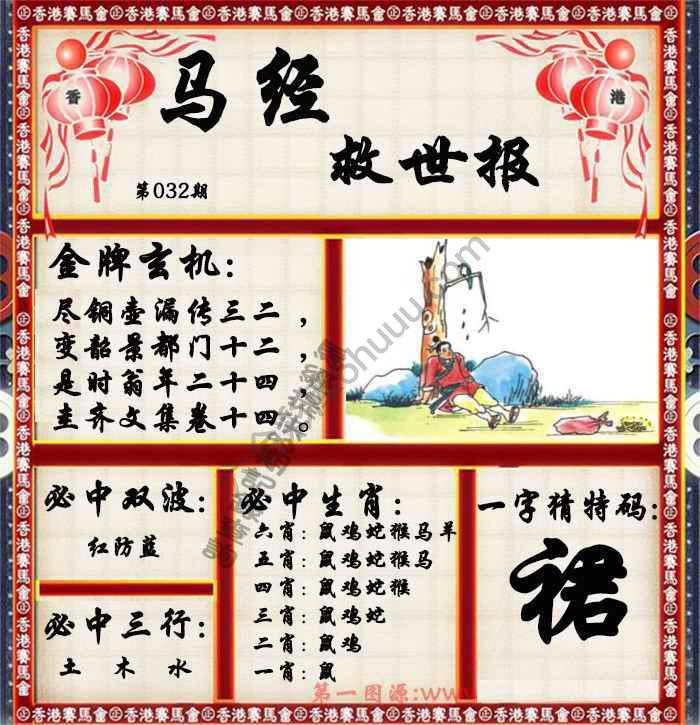 香港賽馬會
香 港
马经
救世报
第032期
金牌玄机:
尽铜壶漏传三二，
变韶景都门十二，
是时翁年二十四，
圭齐文集卷十四。
必中双波:
红防蓝
必中三行:
土 木 水
必中生肖:
六肖:鼠鸡蛇猴马羊
五肖:鼠鸡蛇猴马
四肖:鼠鸡蛇猴
三肖:鼠鸡蛇
二肖:鼠鸡
一肖:鼠
一字猜特码:
裙
第一图源:www